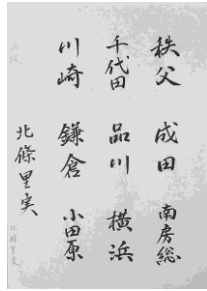 秩父 成田 南房総
千代田 品川 横浜
川崎 鎌倉 小田原
北條里実